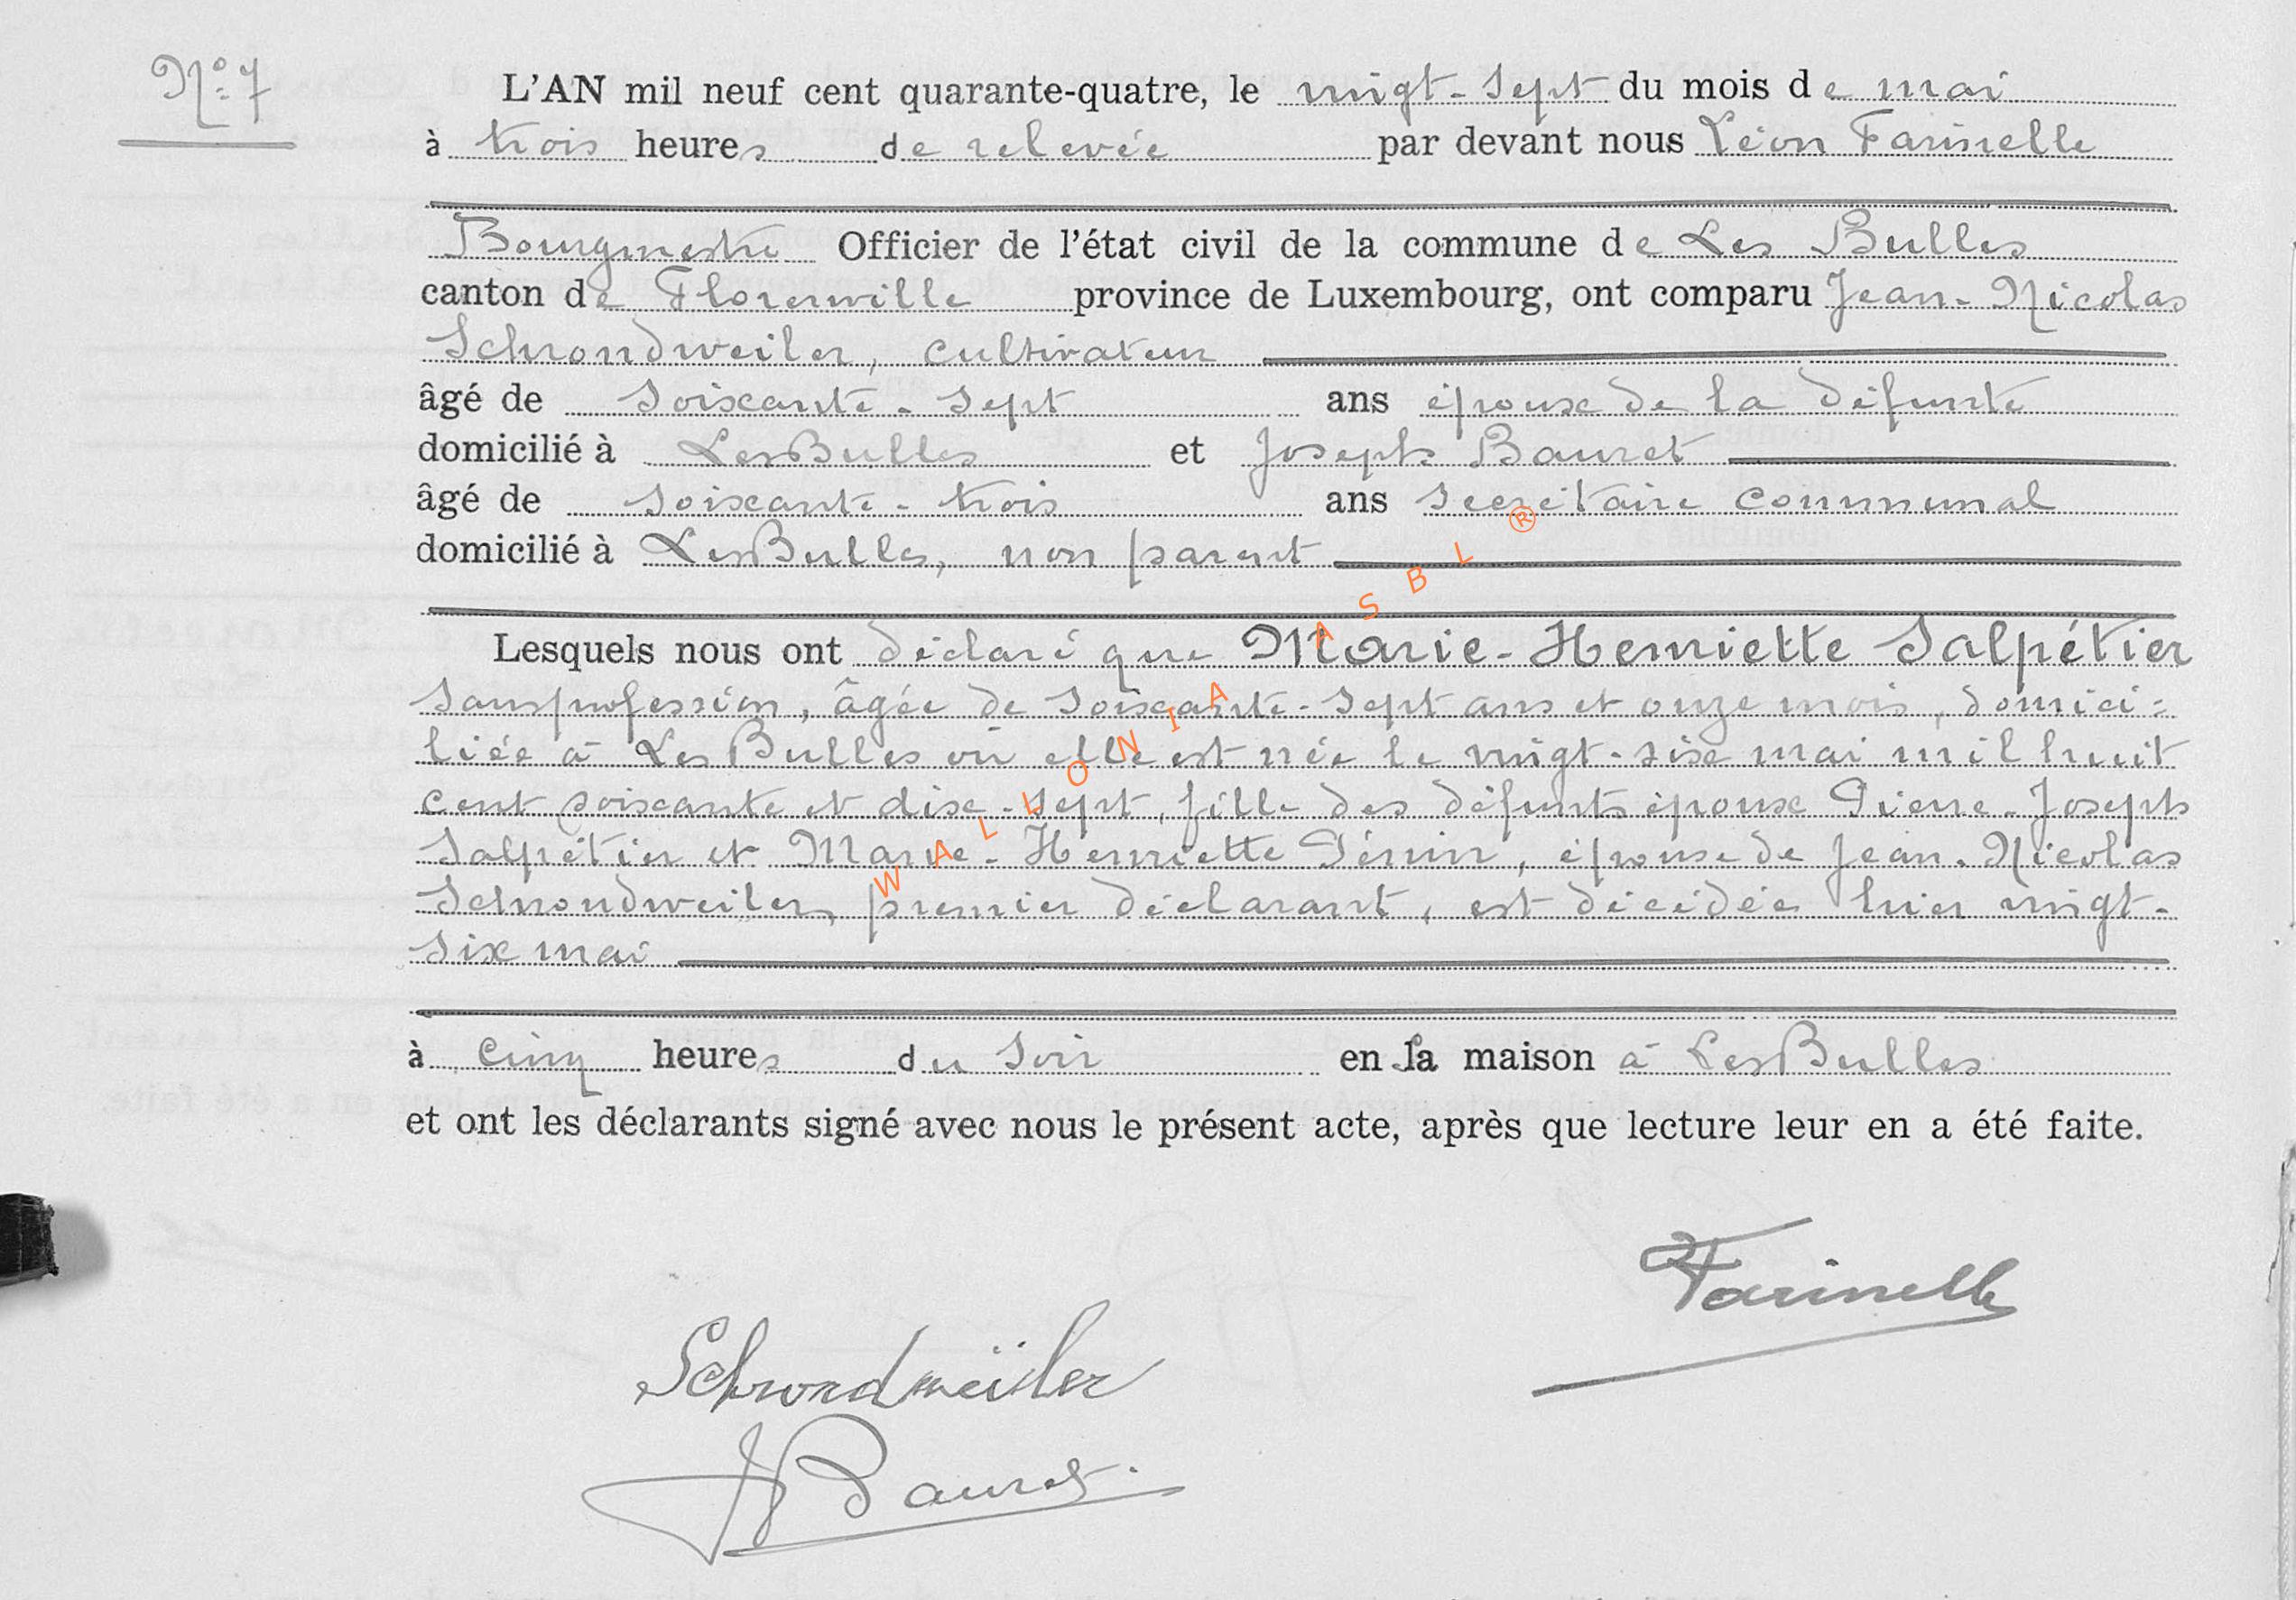 N° 7
L'AN mil neuf cent quarante-quatre, le vingt-sept du mois de mai
à trois heures de relevée par devant nous Léon Farinelle
Bourgmestre Officier de l'état civil de la commune de Les Bulles
canton de Florenville province de Luxembourg, ont comparu Jean-Nicolas
Schrondweiler, cultivateur
âgé de soixante-sept ans époux de la défunte
domicilié à Les Bulles et Joseph Bauret
âgé de soixante-trois ans secrétaire communal
domicilié à Les Bulles, non parent
Lesquels nous ont déclaré que Marie-Henriette Salpétier
sans profession, âgée de soixante-sept ans et onze mois, domici=
liée à Les Bulles où elle est née le vingt-six mai mil huit
cent soixante et dix-sept, fille des défunts époux Pierre-Joseph
Salpétier et Marie-Henriette Pénin, épouse de Jean-Nicolas
Schrondweiler, premier déclarant, est décédée hier vingt-
six mai
à cinq heures du soir en sa maison à Les Bulles
et ont les déclarants signé avec nous le présent acte, après que lecture leur en a été faite.
Farinelle
Schrondweiler
J Bauret
WALLONIA ASBL ®